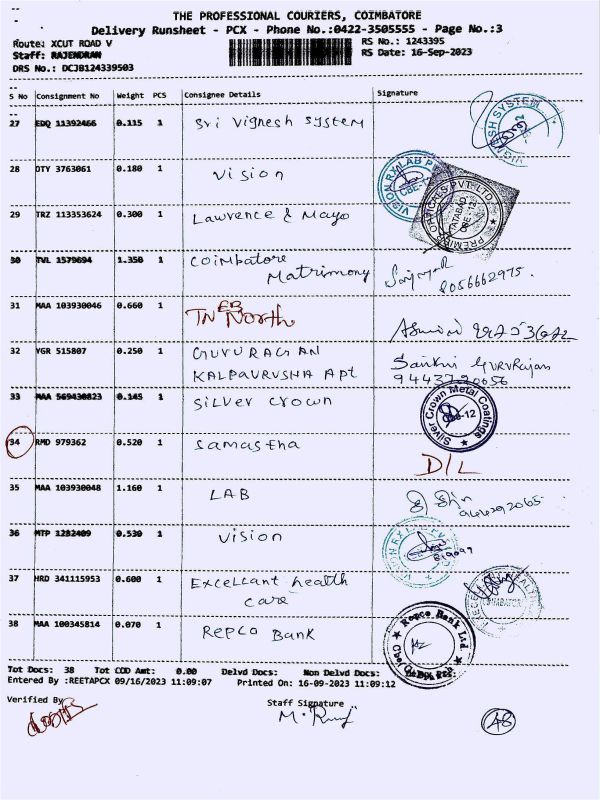 THE PROFESSIONAL COURIERS, COIMBATORE
Delivery Runsheet - PCX - Phone No.:0422-3505555 - Page No.:3
Route: XCUT ROAD V
RS No.: 1243395
Staff: RAJENDRAN
RS Date: 16-Sep-2023
DRS No.: DCJB124339503
S No Consignment No Weight PCS Consignee Details Signature
27 EDQ 11392466 0.115 1 Sri Vignesh System
VIGNESH SYSTEM
28 DTY 3763061 0.180 1 Vision
VISION RX LAB
CBE-12
29 TRZ 113353624 0.300 1 Lawrence & Mayo
PREMIER OPTICALS PVT. LTD.
TATABAD
CBE-12
30 TVL 1579694 1.350 1 Coimbatore
Matrimony
8056662975.
31 MAA 103930046 0.660 1 TN EB North
32 VGR 515807 0.250 1 GUVURAGAN
KALPAVRUSHA APT
33 MAA 569430823 0.145 1 Silver Crown
Silver Crown Metal Coatings
CBE-12
34 RMD 979362 0.520 1 Samastha
D/L
35 MAA 103930048 1.160 1 LAB
36 MTP 1282409 0.530 1 Vision
VISION RX LAB
37 HRD 341115953 0.600 1 Excellant health
care
38 MAA 100345814 0.070 1 Repco Bank
Repco Bank Ltd.
Tot Docs: 38 Tot COD Amt: 0.00 Delvd Docs: Non Delvd Docs:
Entered By :REETAPCX 09/16/2023 11:09:07 Printed On: 16-09-2023 11:09:12
Verified By
Staff Signature
48